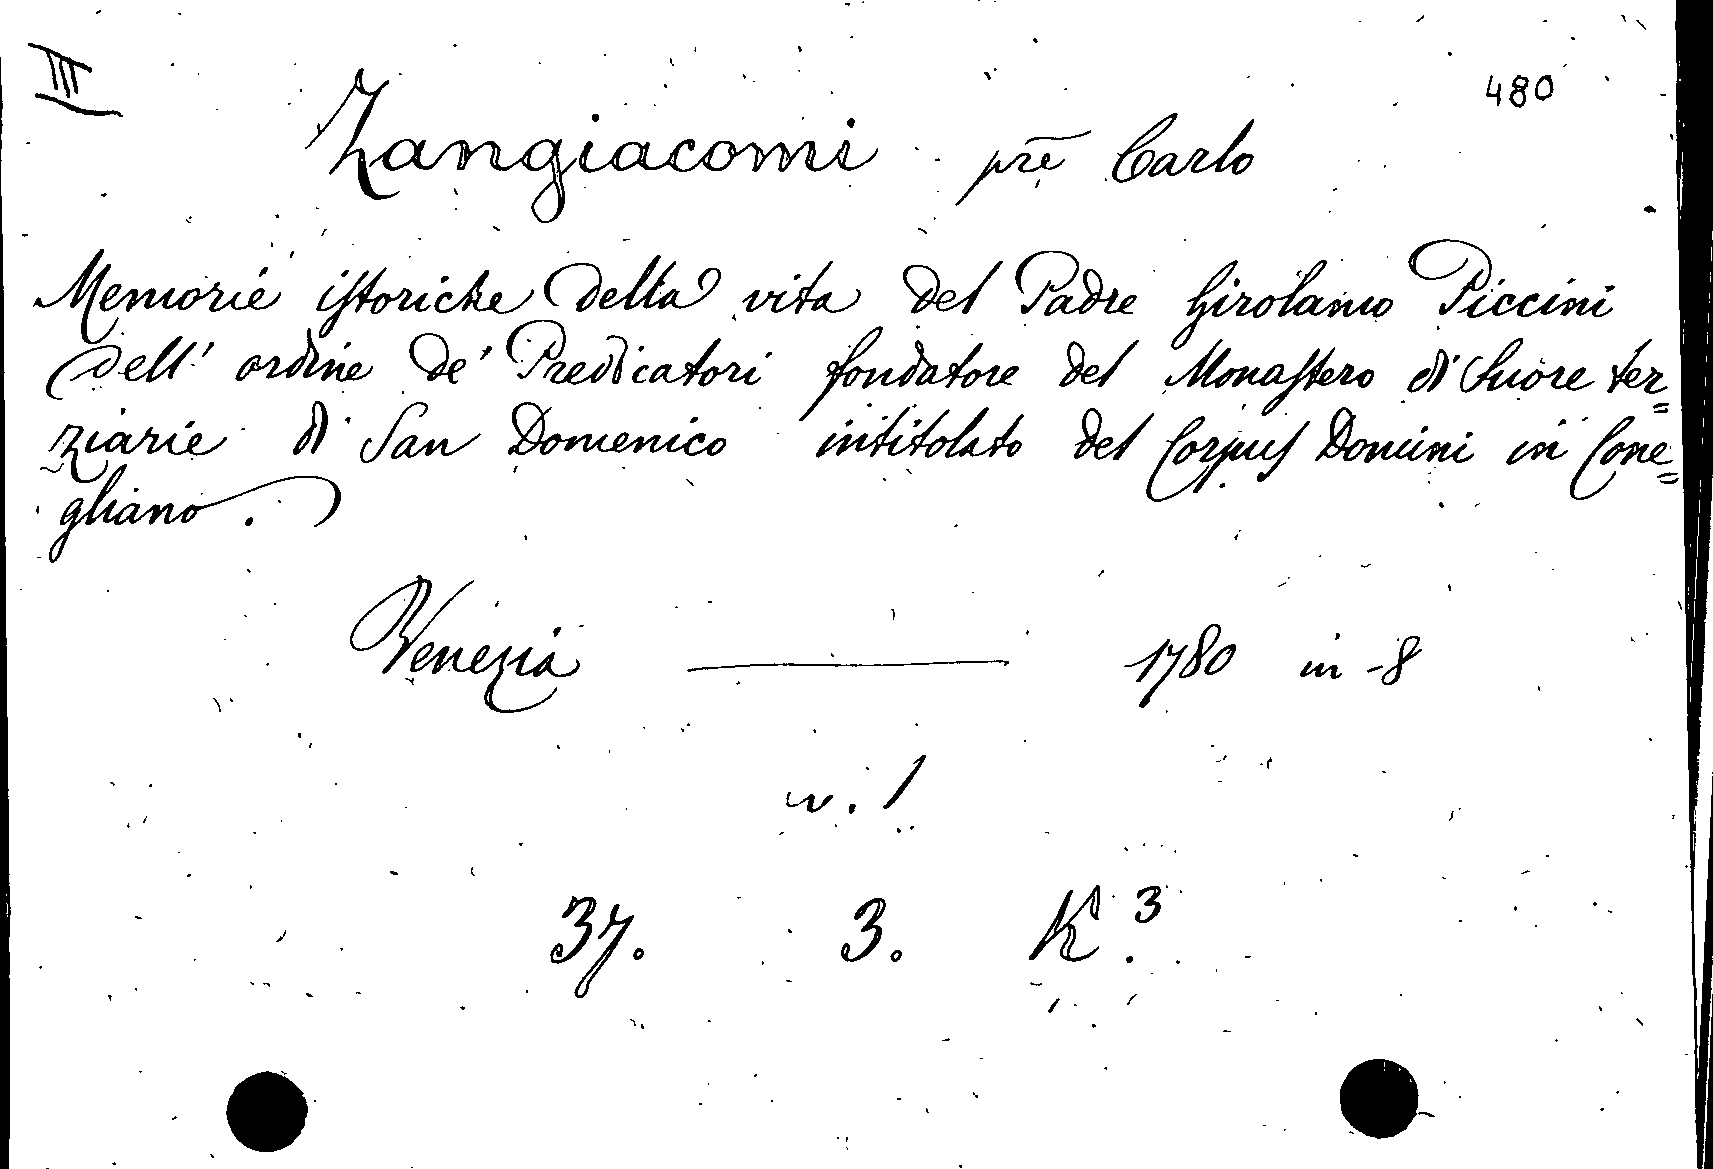 III
480
Zangiacomi prē Carlo
Memorie istoriche della vita del Padre Girolamo Piccini
dell' ordine de' Predicatori fondatore del Monastero di Suore ter=
ziarie di San Domenico intitolato del Corpus Domini in Cone=
gliano.
Venezia — 1780 in-8
v. 1
37. 3. K.3